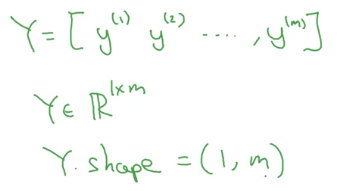 Y = [ y⁽¹⁾ y⁽²⁾ ...., y⁽ᵐ⁾ ]
Y ∈ ℝ^{1×m}
Y.shape = (1, m)